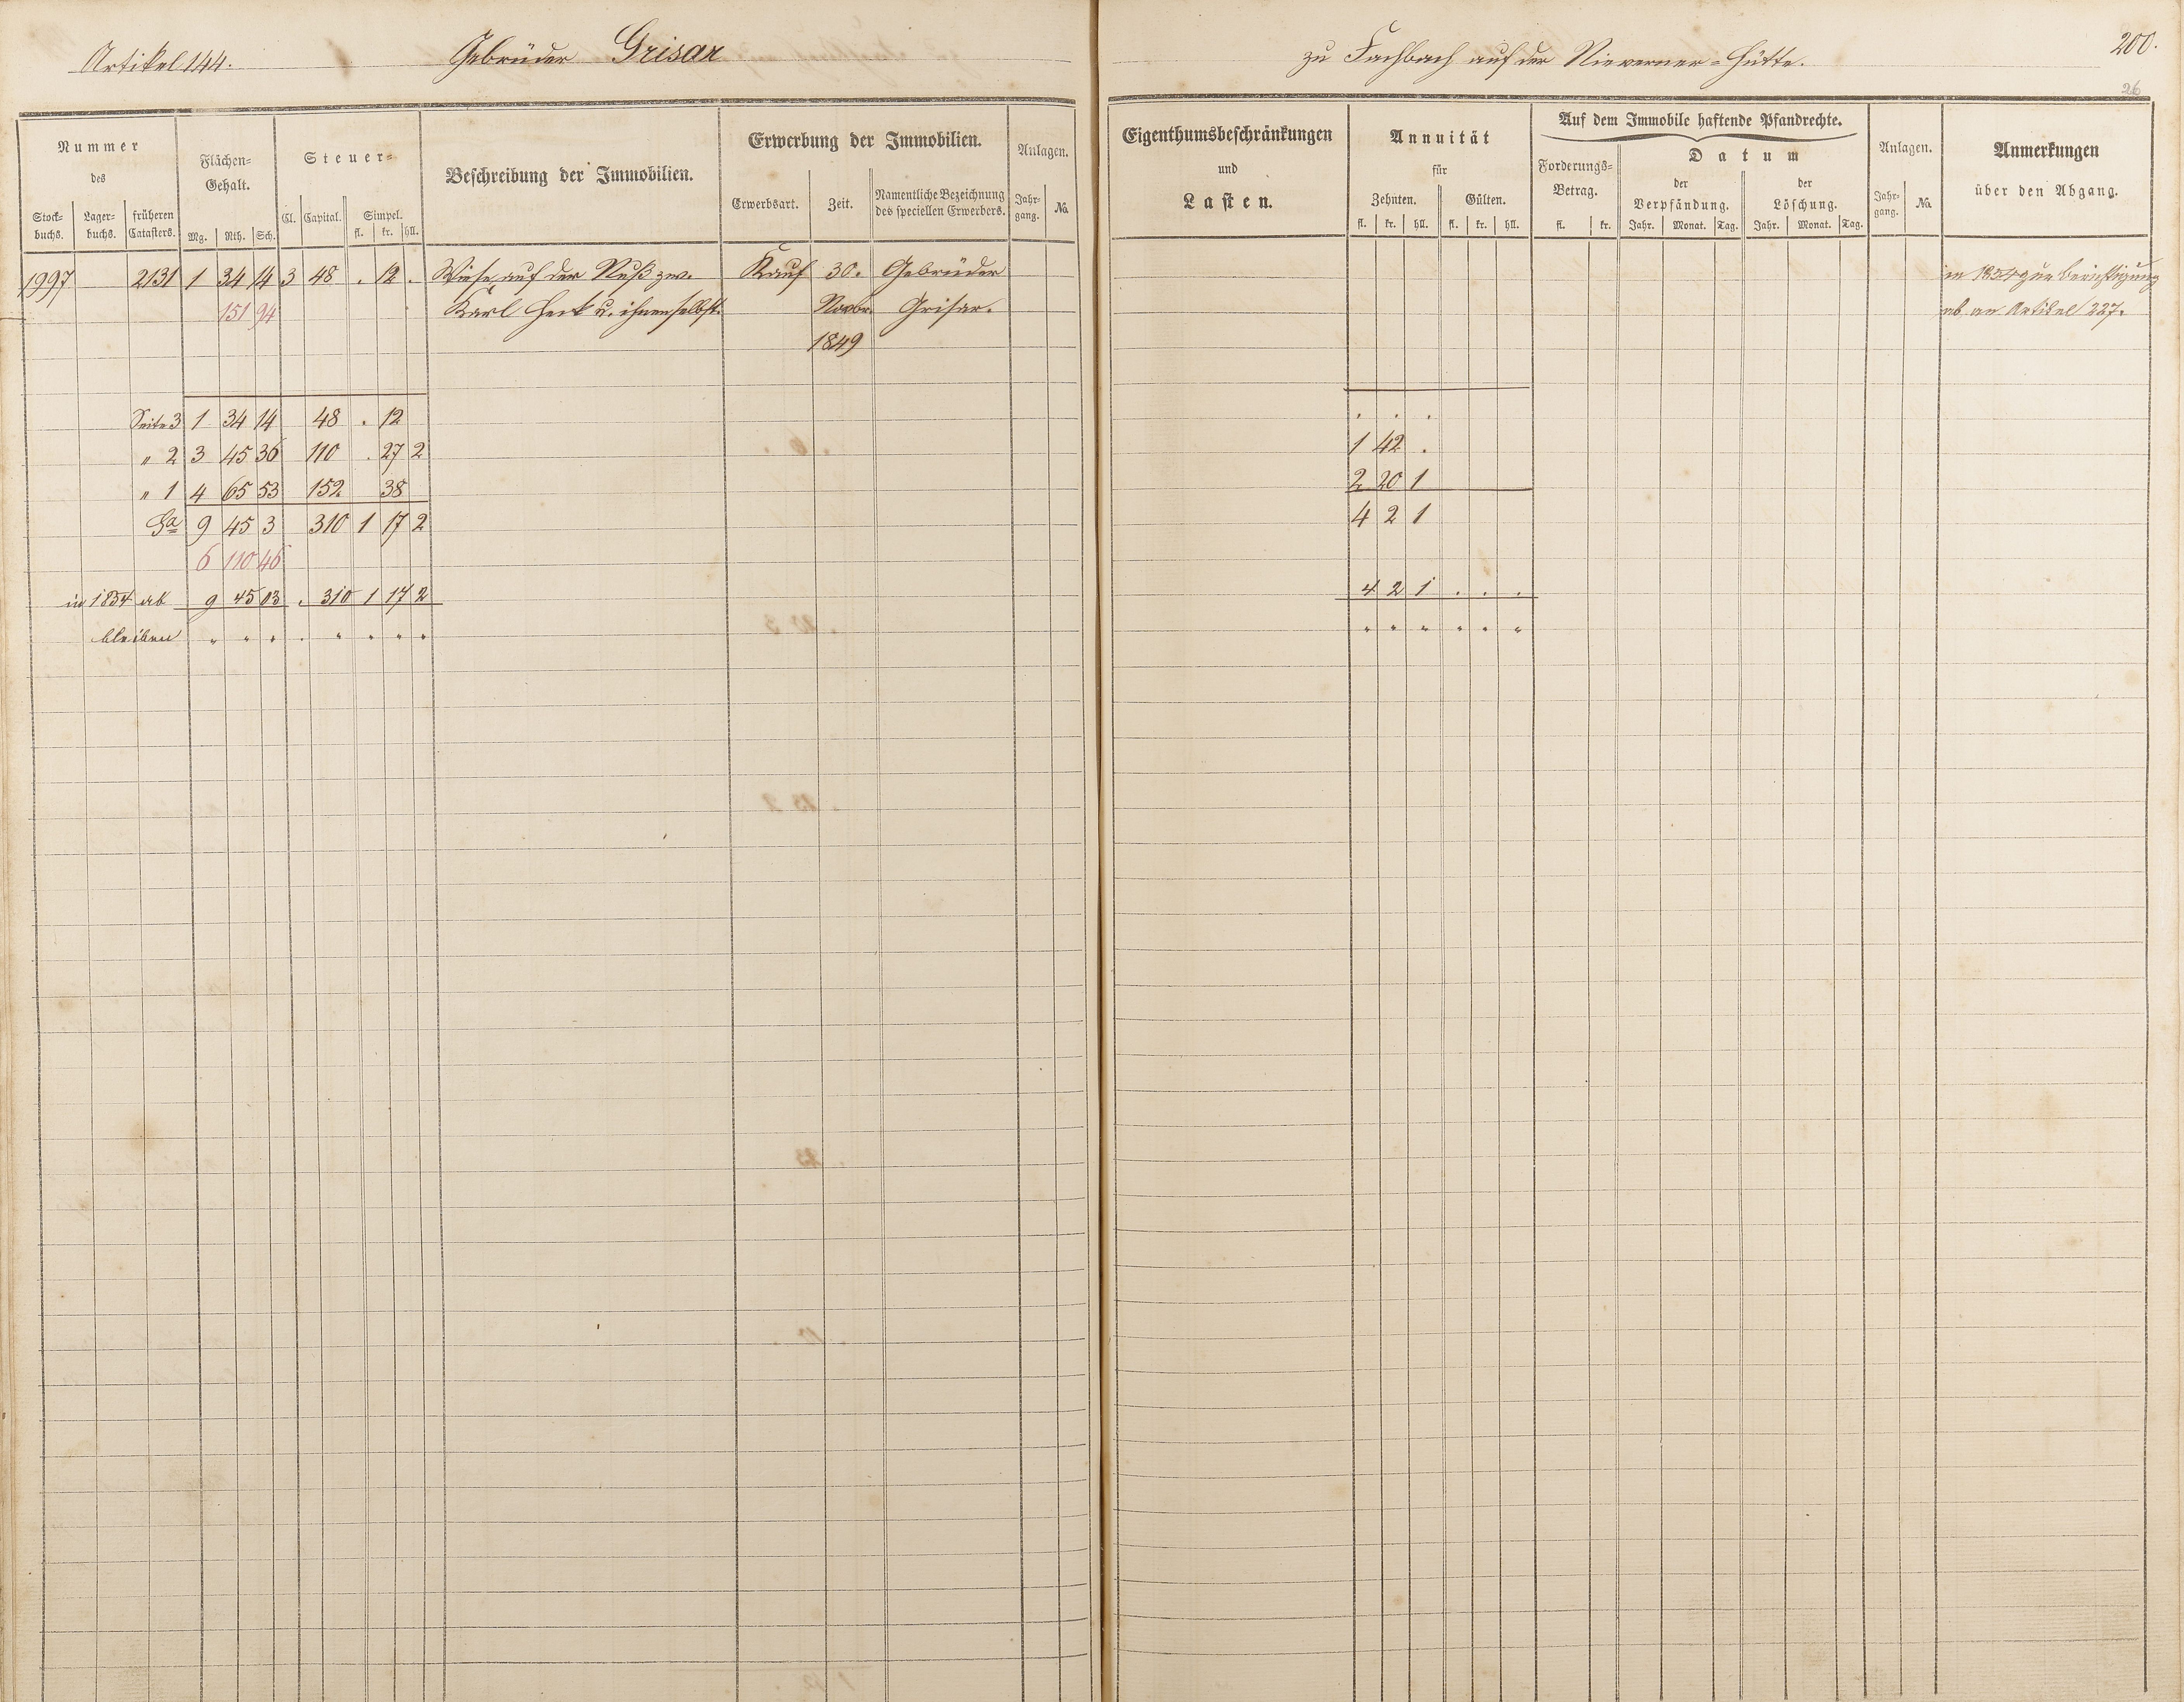 Artikel 144. Gebrüder Grisar zu Fachbach auf der Nieverner-Hütte. 200.
26
Nummer des
Stock-buchs. Lager-buchs. früheren Catasters.
Flächen-Gehalt.
Mg. Rth. Sch.
Steuer-
Cl. Capital. Simpel. fl. kr. hll.
Beschreibung der Immobilien.
Erwerbung der Immobilien.
Erwerbsart. Zeit. Namentliche Bezeichnung des speciellen Erwerbers.
Anlagen.
Jahr-gang. No.
Eigenthumsbeschränkungen
und
Lasten.
Annuität
für
Zehnten. Gülten.
fl. kr. hll. fl. kr. hll.
Auf dem Immobile haftende Pfandrechte.
Forderungs-Betrag.
fl. kr.
Datum
der Verpfändung. der Löschung.
Jahr. Monat. Tag. Jahr. Monat. Tag.
Anlagen.
Jahr-gang. No.
Anmerkungen
über den Abgang.
1997 2131 1 34 14 3 48 . 12 . Wiese auf der Nuß zw. Kauf 30. Gebrüder in 1854 zur Berichtigung
151 94 Karl Heck u. ihnen selbst. Novbr. Grisar. ab an Artikel 227.
1849
Seite 3 1 34 14 48 . 12 . . .
" 2 3 45 36 110 . 27 2 1 42 .
" 1 4 65 53 152 38 2 20 1
Sa 9 45 3 310 1 17 2 4 2 1
6 110 46
in 1854 ab 9 45 03 . 310 1 17 2 4 2 1 . . .
bleiben " " " . " " " " " " " " " "